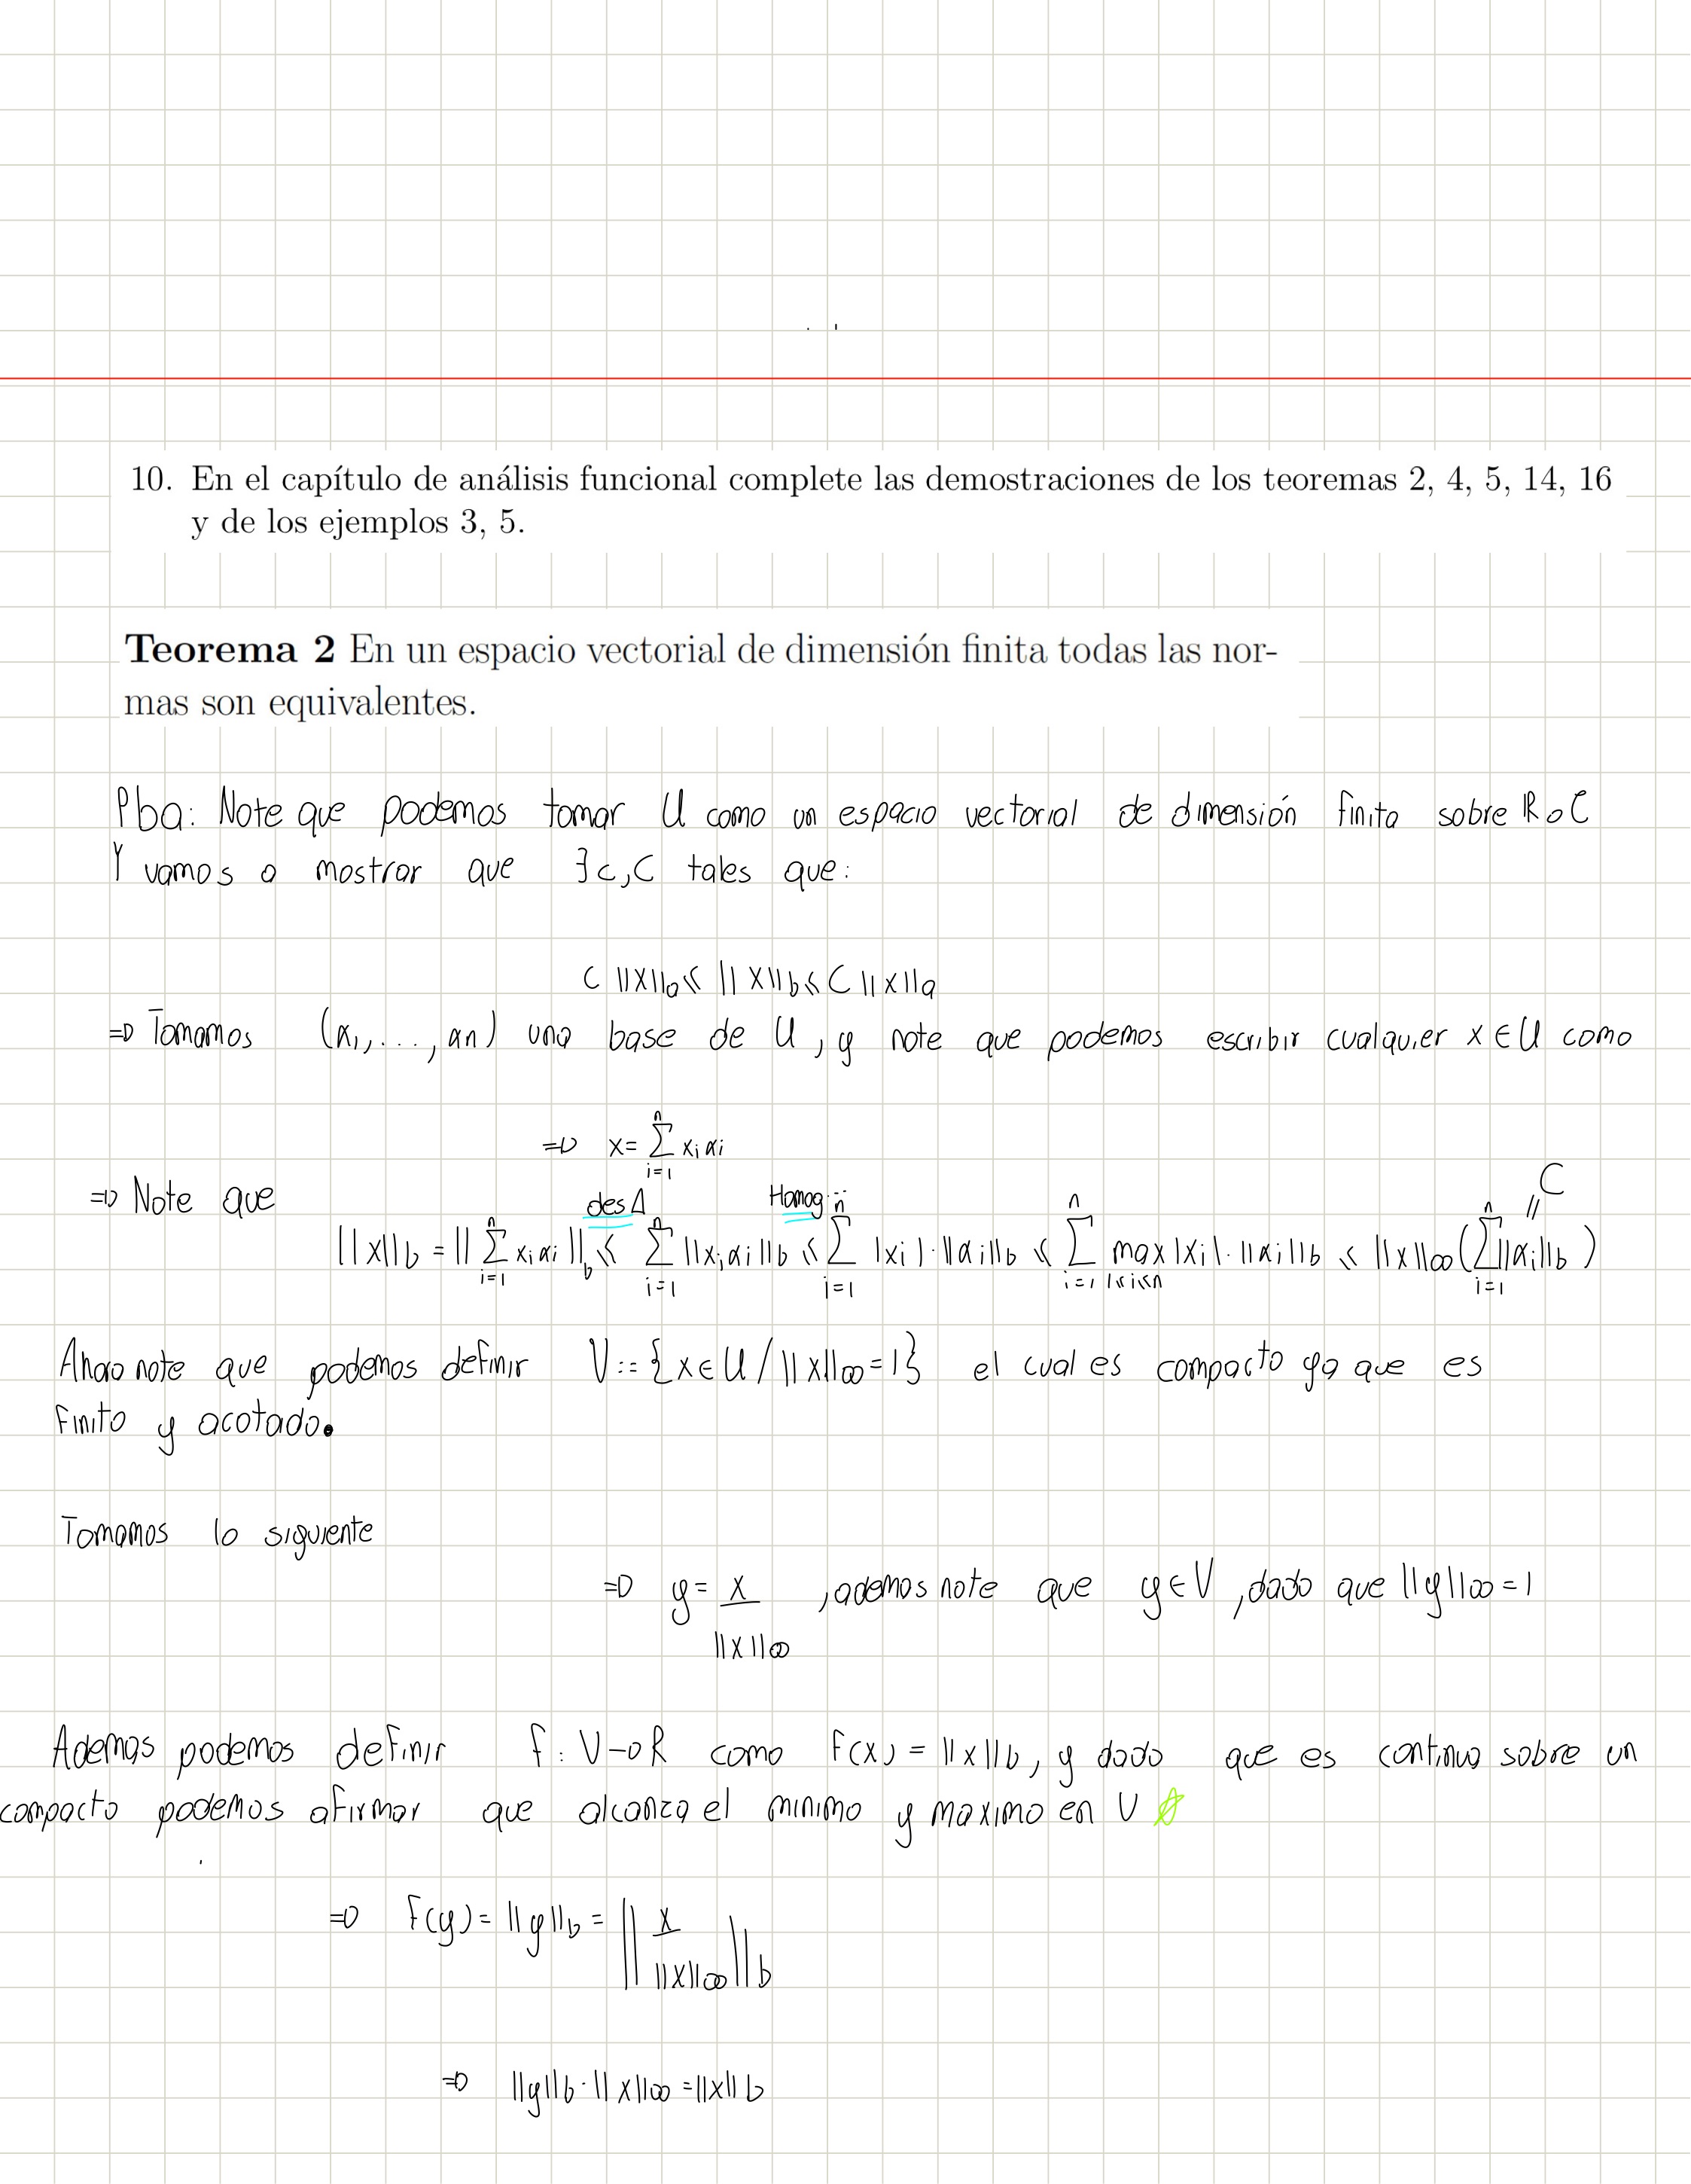 10. En el capítulo de análisis funcional complete las demostraciones de los teoremas 2, 4, 5, 14, 16
y de los ejemplos 3, 5.
Teorema 2 En un espacio vectorial de dimensión finita todas las nor-
mas son equivalentes.
Pba: Note que podemos tomar U como un espacio vectorial de dimensión finita sobre ℝ o ℂ
Y vamos a mostrar que ∃ c, C tales que:
C ||x||a ≤ ||x||b ≤ C ||x||a
⇒ Tomamos (α1, ..., αn) una base de U, y note que podemos escribir cualquier x ∈ U como
⇒ x = ∑_{i=1}^{n} xi αi
⇒ Note que
des Δ Homog
||x||b = ||∑_{i=1}^{n} xi αi||b ≤ ∑_{i=1}^{n} ||xi αi||b ≤ ∑_{i=1}^{n} |xi| · ||αi||b ≤ ∑_{i=1}^{n} max_{1≤i≤n} |xi| · ||αi||b ≤ ||x||∞ (∑_{i=1}^{n} ||αi||b) = C
Ahora note que podemos definir V := {x ∈ U / ||x||∞ = 1} el cual es compacto ya que es
finito y acotado.
Tomamos lo siguiente
⇒ y = x / ||x||∞ , ademas note que y ∈ V, dado que ||y||∞ = 1
Ademas podemos definir f: V → R como f(x) = ||x||b, y dado que es continua sobre un
compacto podemos afirmar que alcanza el minimo y maximo en V ☆
⇒ f(y) = ||y||b = ||x / ||x||∞||b
⇒ ||y||b · ||x||∞ = ||x||b